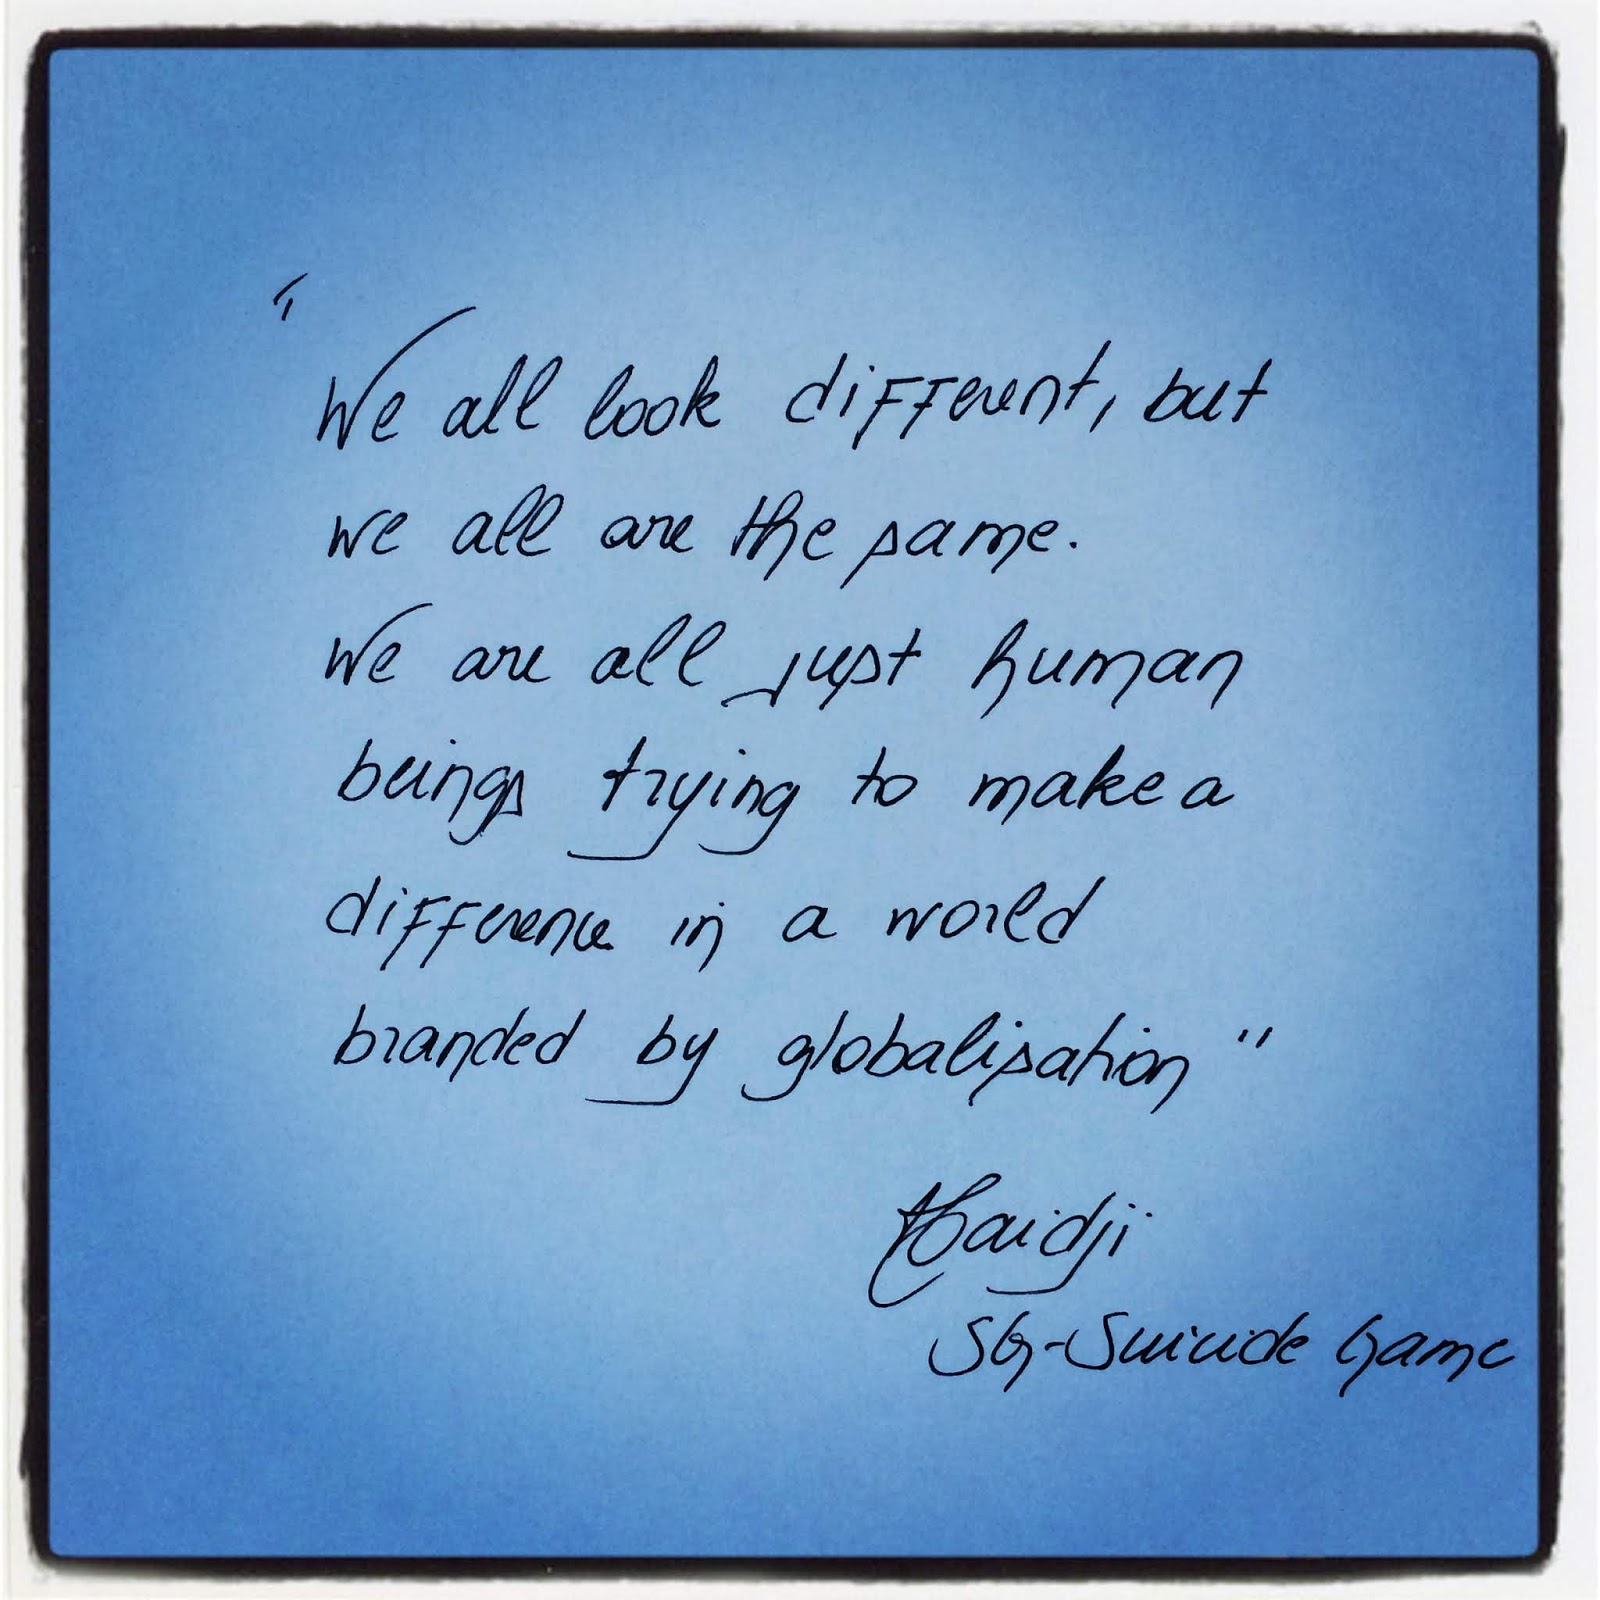 "We all look different, but
we all are the same.
We are all just human
beings trying to make a
difference in a world
branded by globalisation"
Haidji
SG-Suicide Game